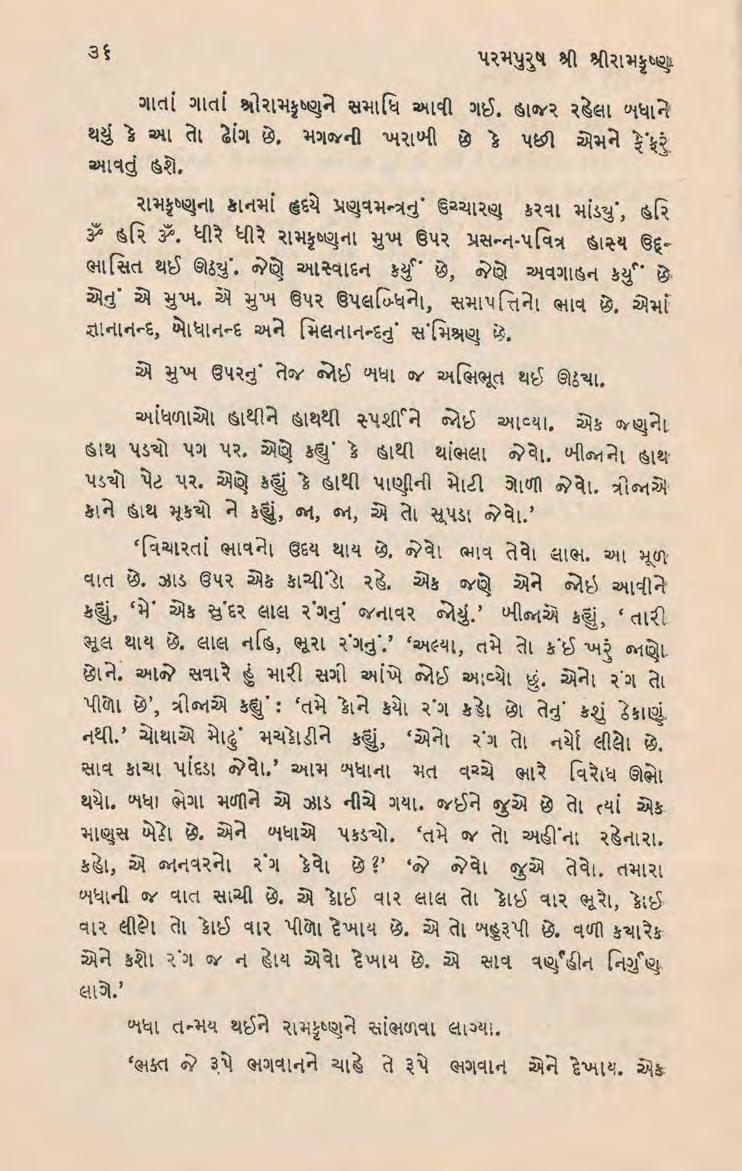 ૩૬
પરમપુરુષ શ્રી શ્રીરામકૃષ્ણ
ગાતાં ગાતાં શ્રીરામકૃષ્ણને સમાધિ આવી ગઈ. હાજર રહેલા બધાને
થયું કે આ તો ઢોંગ છે. મગજની ખરાબી છે કે પછી એમને ફેંફરું
આવતું હશે.
રામકૃષ્ણના કાનમાં હૃદયે પ્રણવમન્ત્રનું ઉચ્ચારણ કરવા માંડયું, હરિ
ૐ હરિ ૐ. ધીરે ધીરે રામકૃષ્ણના મુખ ઉપર પ્રસન્ન-પવિત્ર હાસ્ય ઉદ્-
ભાસિત થઈ ઊઠયું. જેણે આસ્વાદન કર્યું છે, જેણે અવગાહન કર્યું છે
એનું એ મુખ. એ મુખ ઉપર ઉપલબ્ધિનો, સમાપત્તિનો ભાવ છે. એમાં
જ્ઞાનાનન્દ, બોધાનન્દ અને મિલનાનન્દનું સંમિશ્રણ છે.
એ મુખ ઉપરનું તેજ જોઈ બધા જ અભિભૂત થઈ ઊઠયા.
આંધળાઓ હાથીને હાથથી સ્પર્શીને જોઈ આવ્યા. એક જણનો
હાથ પડયો પગ પર. એણે કહ્યું કે હાથી થાંભલા જેવો. બીજાનો હાથ
પડયો પેટ પર. એણે કહ્યું કે હાથી પાણીની મોટી ગોળી જેવો. ત્રીજાએ
કાને હાથ મૂકયો ને કહ્યું, જા, જા, એ તો સૂપડા જેવો.’
‘વિચારતાં ભાવનો ઉદય થાય છે. જેવો ભાવ તેવો લાભ. આ મૂળ
વાત છે. ઝાડ ઉપર એક કાચીંડો રહે. એક જણે એને જોઇ આવીને
કહ્યું, ‘મેં એક સુંદર લાલ રંગનું જનાવર જોયું.’ બીજાએ કહ્યું, ‘ તારી
ભૂલ થાય છે. લાલ નહિ, ભૂરા રંગનું.’ ‘અલ્યા, તમે તો કંઈ ખરું જાણો
છોને. આજે સવારે હું મારી સગી આંખે જોઈ આવ્યો છું. એનો રંગ તો
પીળો છે’, ત્રીજાએ કહ્યું : ‘તમે કોને કયો રંગ કહો છો તેનું કશું ઠેકાણું
નથી.’ ચોથાએ મોઢું મચકોડીને કહ્યું, ‘એનો રંગ તો નર્યો લીલો છે.
સાવ કાચા પાંદડા જેવો.’ આમ બધાના મત વચ્ચે ભારે વિરોધ ઊભો
થયો. બધા ભેગા મળીને એ ઝાડ નીચે ગયા. જઈને જુએ છે તો ત્યાં એક
માણસ બેઠો છે. એને બધાએ પકડયો. ‘તમે જ તો અહીંના રહેનારા.
કહો, એ જાનવરનો રંગ કેવો છે?’ ‘જે જેવો જુએ તેવો. તમારા
બધાની જ વાત સાચી છે. એ કોઈ વાર લાલ તો કોઈ વાર ભૂરો, કોઈ
વાર લીલો તો કોઈ વાર પીળો દેખાય છે. એ તો બહુરૂપી છે. વળી કયારેક
એને કશો રંગ જ ન હોય એવો દેખાય છે. એ સાવ વર્ણહીન નિર્ગુણ
લાગે.’
બધા તન્મય થઈને રામકૃષ્ણને સાંભળવા લાગ્યા.
‘ભક્ત જે રૂપે ભગવાનને ચાહે તે રૂપે ભગવાન એને દેખાય. એક